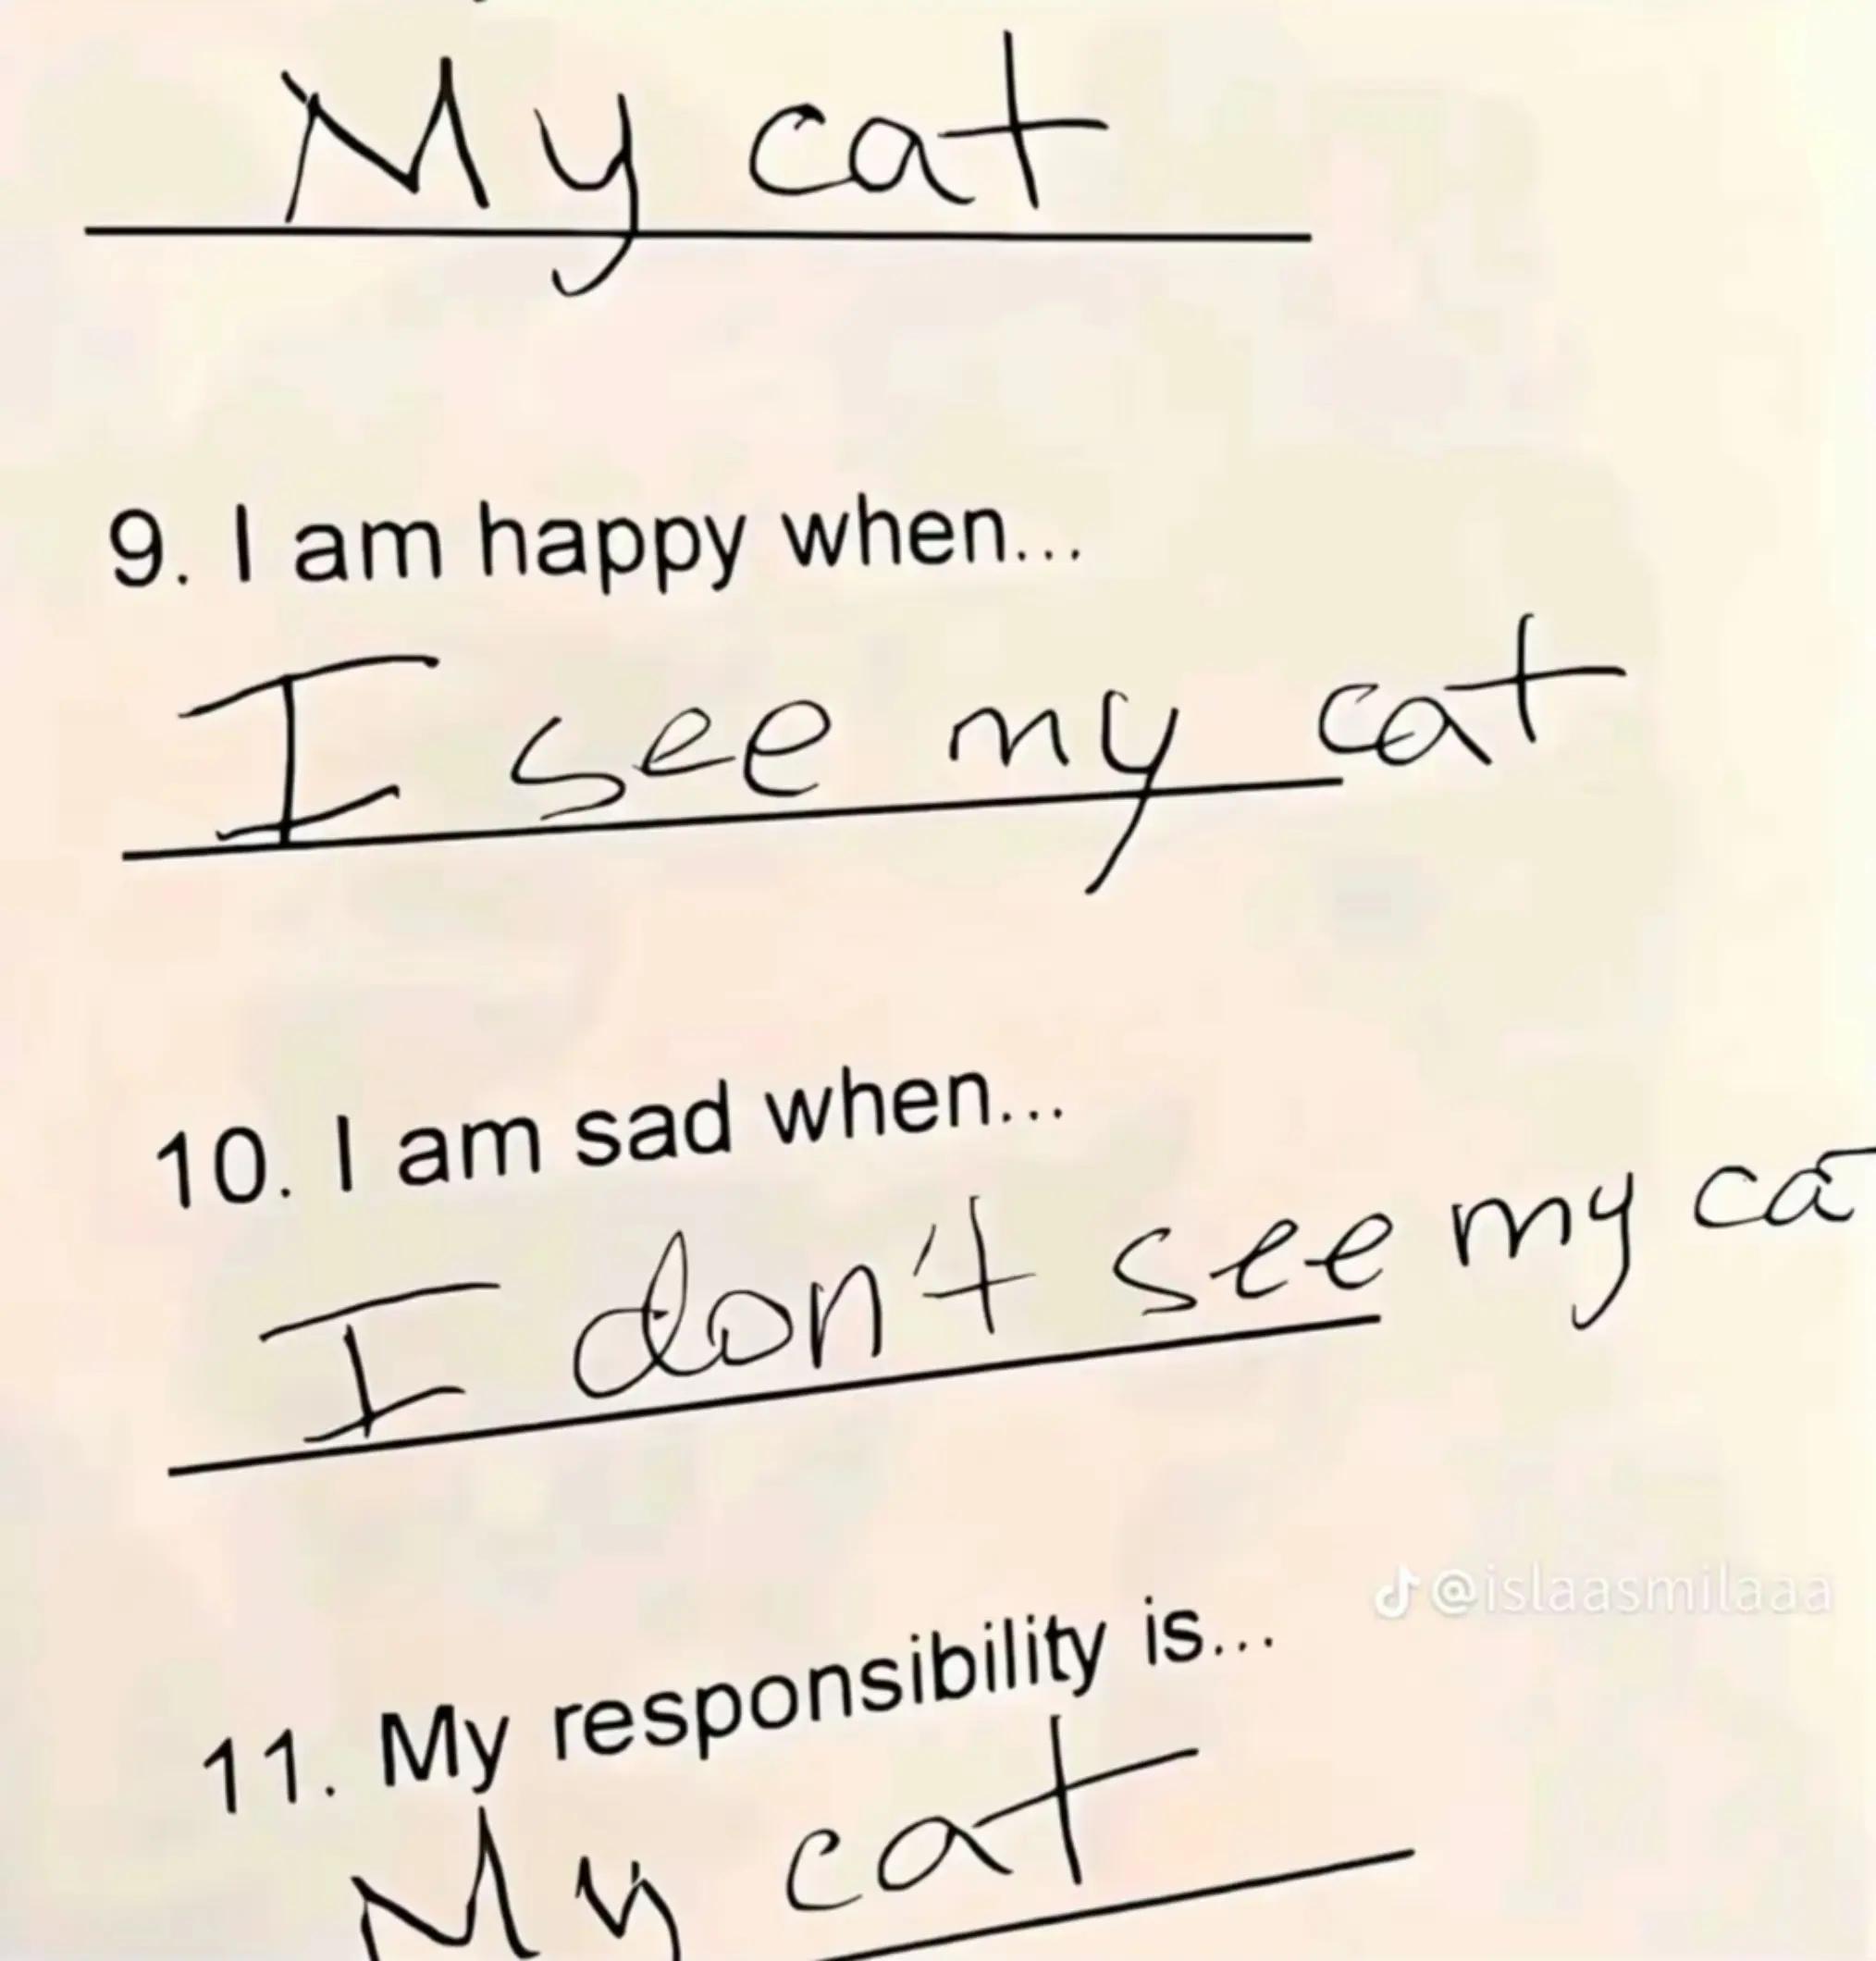 My cat
9. I am happy when...
I see my cat
10. I am sad when...
I don't see my ca
@islaasmilaaa
11. My responsibility is...
My cat